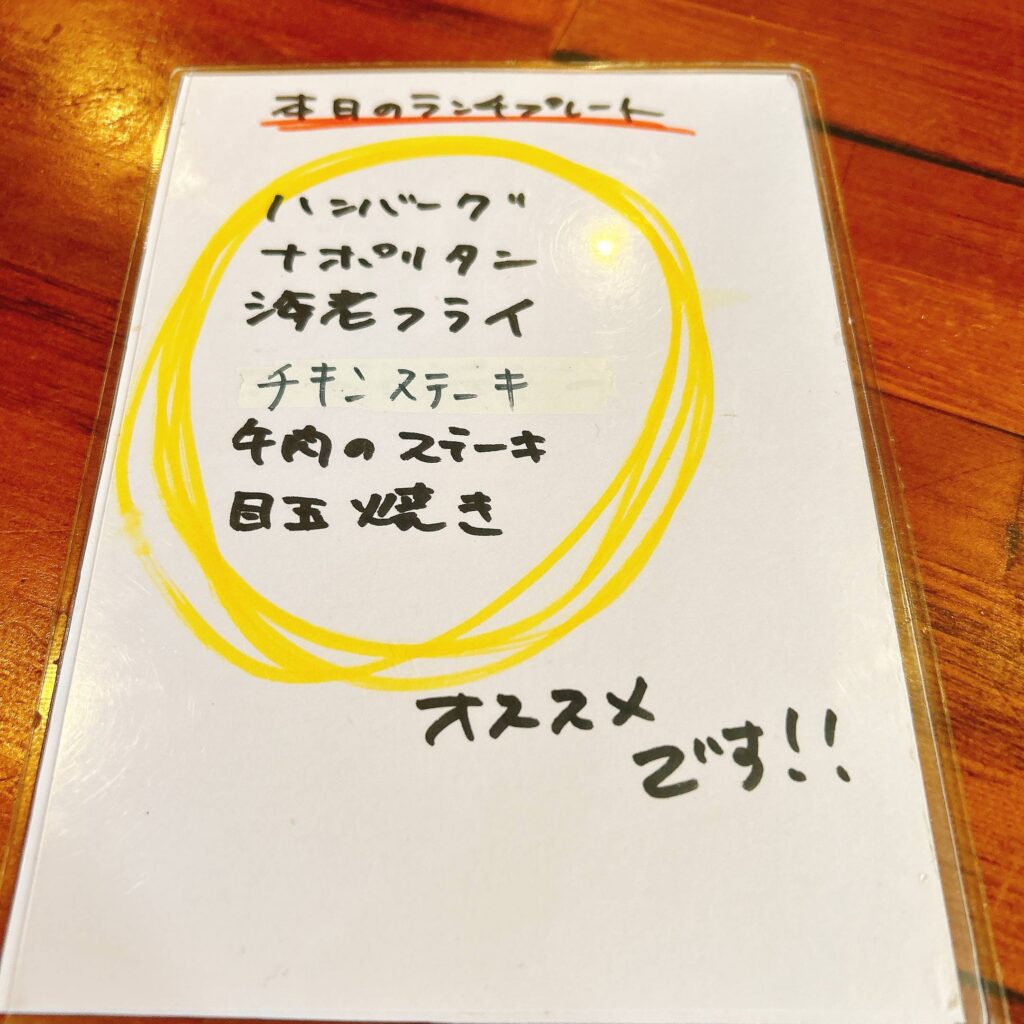 本日のランチプレート
ハンバーグ
ナポリタン
海老フライ
チキンステーキ
牛肉のステーキ
目玉焼き
オススメ
です!!